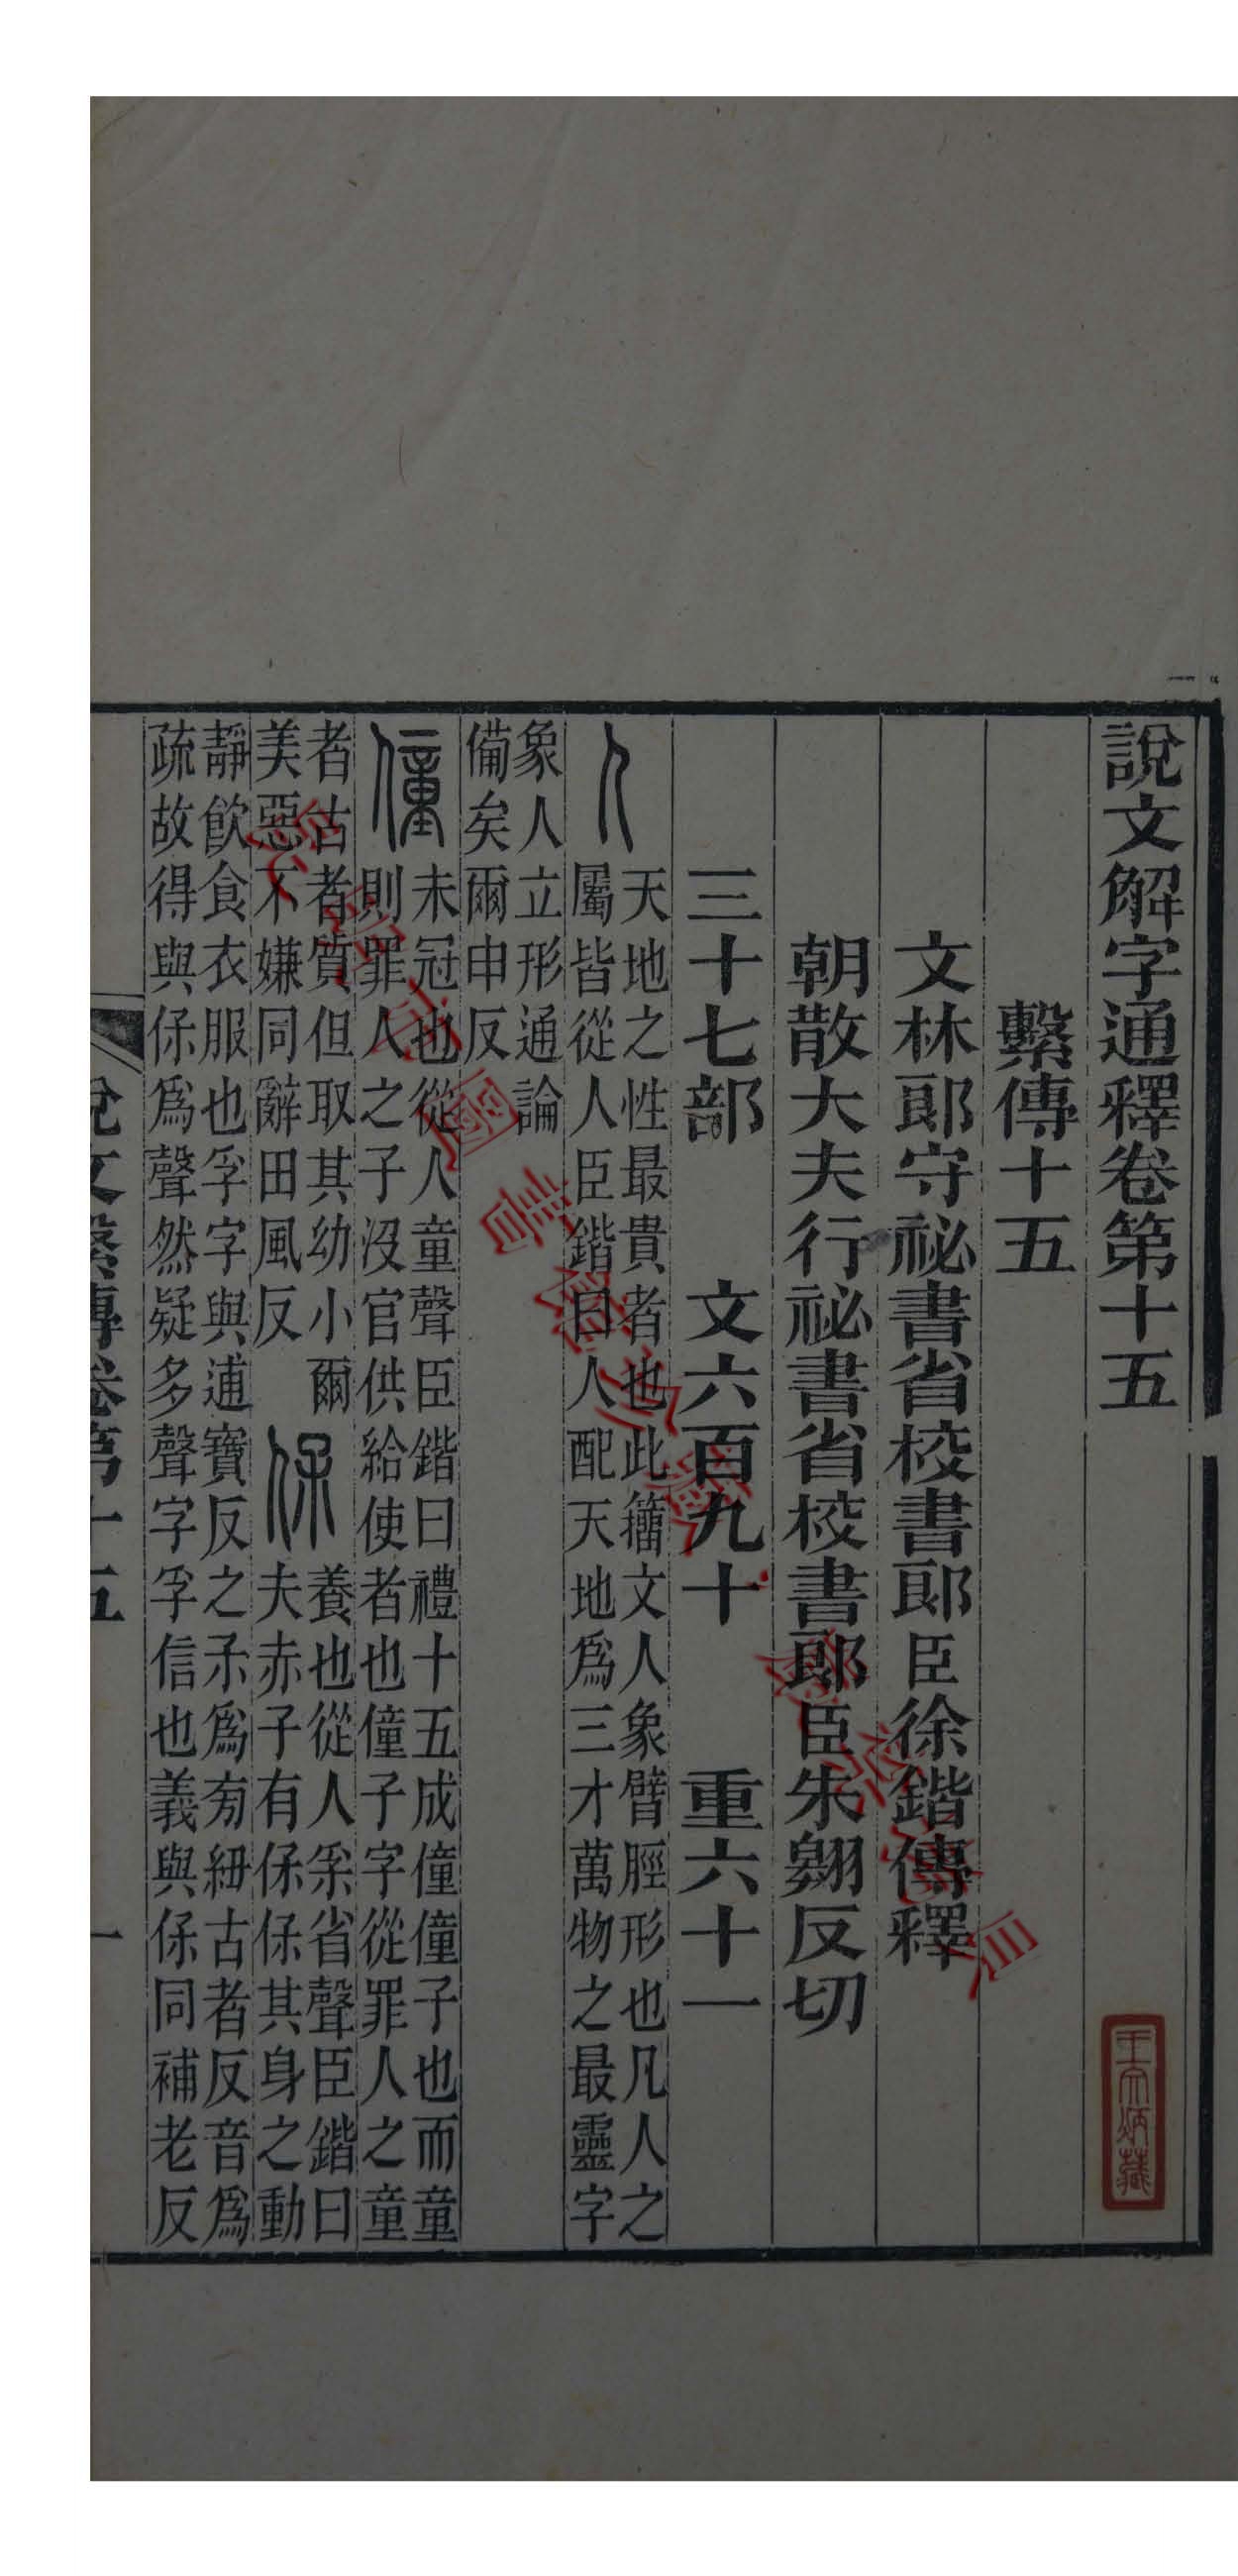 說文解字通釋卷第十五
繫傳十五
文林郎守祕書省校書郎臣徐鍇傳釋
朝散大夫行祕書省校書郎臣朱翺反切
三十七部 文六百九十 重六十一
人
天地之性最貴者也此籀文人象臂脛形也凡人之
屬皆從人臣鍇曰人配天地爲三才萬物之最靈字
象人立形通論
備矣爾申反
僮
未冠也從人童聲臣鍇曰禮十五成僮僮子也而童
則罪人之子沒官供給使者也僮子字從罪人之童
者古者質但取其幼小爾
美惡不嫌同辭田風反
保
養也從人𤓽省聲臣鍇曰
夫赤子有保保其身之動
靜飲食衣服也孚字與逋寶反之𤓽爲㫄紐古者反音爲
疏故得與保爲聲然疑多聲字孚信也義與保同補老反
說文繫傳卷第十五
一
王宗炳藏